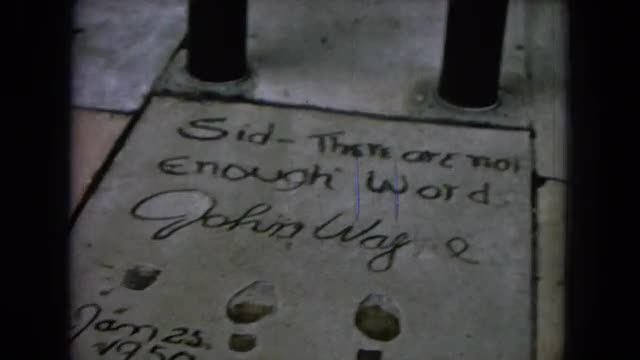 Sid - There are not
Enough Word
John Wayne
Jan 25.
1950